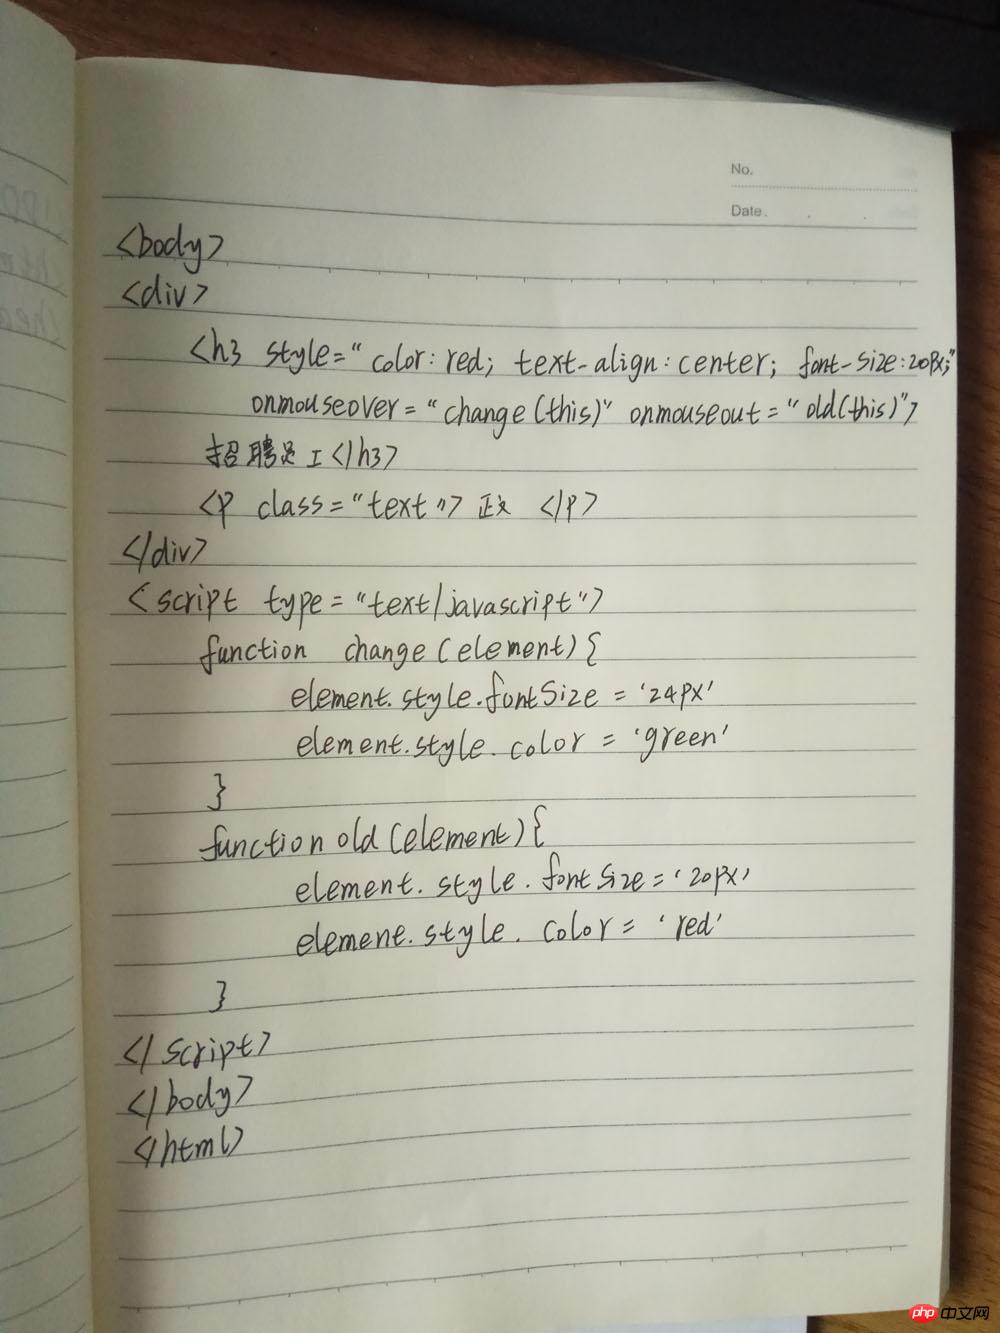 No.
Date.
<body>
<div>
<h3 style="color:red; text-align:center; font-size:20px;"
onmouseover="change(this)" onmouseout="old(this)">
招聘员工</h3>
<p class="text"> 正文 </p>
</div>
<script type="text/javascript">
function change(element){
element.style.fontSize = '24px'
element.style.color = 'green'
}
function old(element){
element.style.fontSize='20px'
element.style.color = 'red'
}
</script>
</body>
</html>
php 中文网